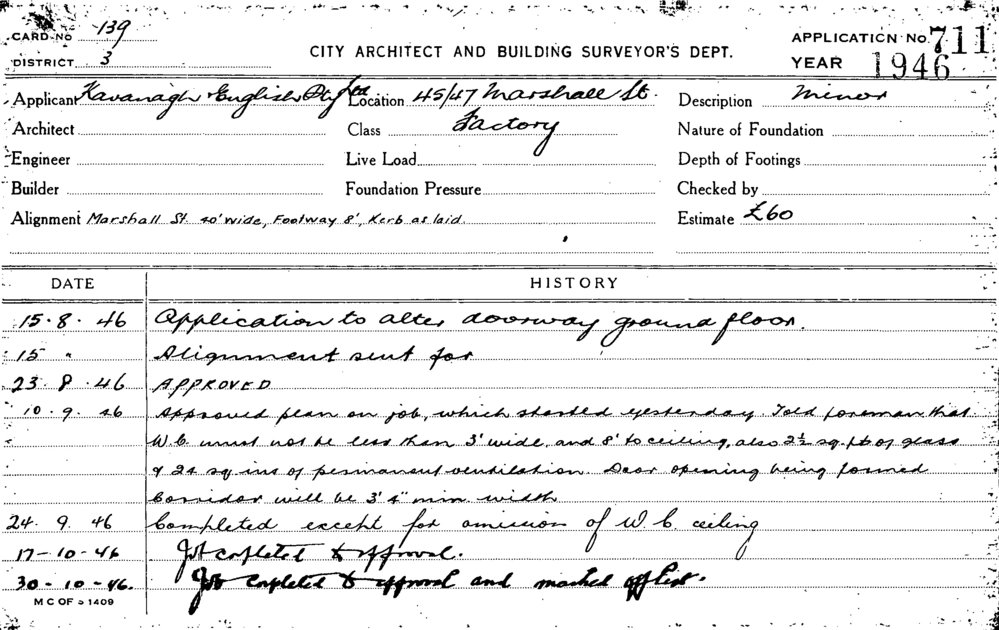 CARD No 139
DISTRICT 3
CITY ARCHITECT AND BUILDING SURVEYOR'S DEPT.
APPLICATION No. 711
YEAR 1946
Applicant Kavanagh English Pty Ltd Location 45/47 Marshall St. Description Minor
Architect Class Factory Nature of Foundation
Engineer Live Load Depth of Footings
Builder Foundation Pressure Checked by
Alignment Marshall St. 40' wide, Footway 8', Kerb as laid. Estimate £60
DATE HISTORY
15.8.46 Application to alter doorway ground floor.
15 " Alignment sent for
23.8.46 APPROVED
10.9.46 Approved plan on job, which started yesterday. Told foreman that
W.C. must not be less than 3' wide, and 8' to ceiling, also 2½ sq. ft of glass
& 24 sq ins of permanent ventilation. Door opening being formed
Corridor will be 3' 4" min. width
24.9.46 Completed except for omission of W.C. ceiling
17-10-46 Job completed to approval.
30-10-46. Job completed to approval and marked off list.
M C OF S 1409